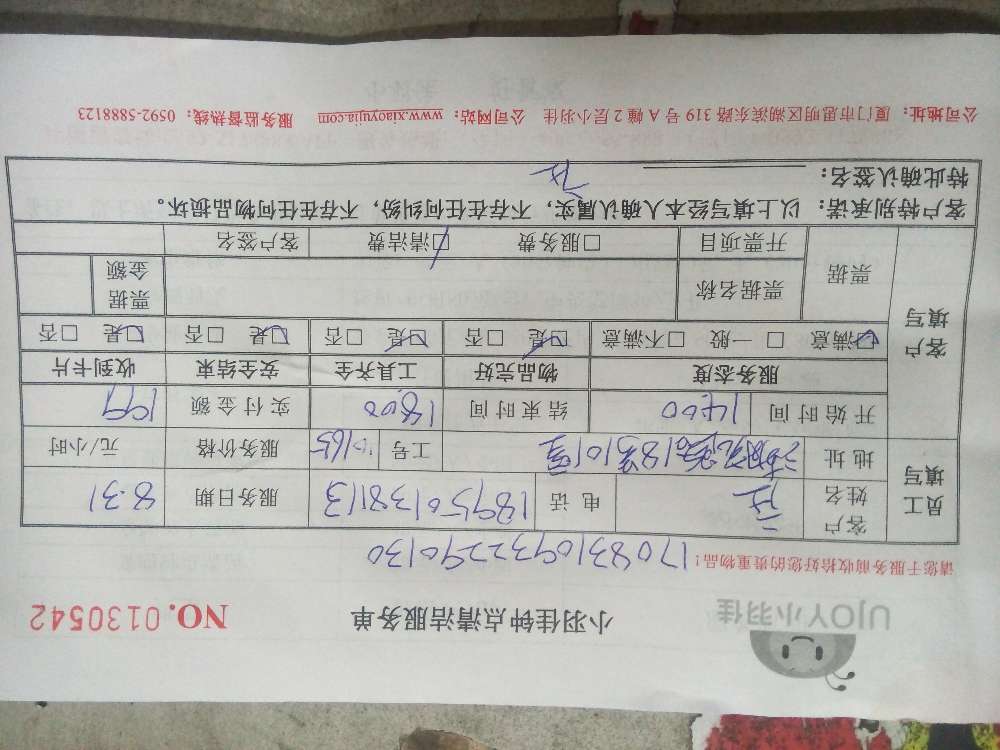 UJOY小羽佳
小羽佳钟点清洁服务单
NO. 0130542
请您于服务前收拾好您的贵重物品！
1708310932290130
员工填写
客户姓名
电 话 18950138113
服务日期 8.31
地址 18号101室
工号 10165
服务价格 元/小时
开始时间 14:00
结束时间 18:00
实付金额 199
客户填写
服务态度 物品完好 工具齐全 安全结束 收到卡片
☑满意 □一般 □不满意 ☑是 □否 ☑是 □否 ☑是 □否 ☑是 □否
票据 票据名称 票据金额
开票项目 □服务费 ☑清洁费 客户签名
客户特别承诺：以上填写经本人确认属实，不存在任何纠纷，不存在任何物品损坏。
特此确认签名：
公司地址：厦门市思明区湖滨东路319号A幢2层小羽佳 公司网站：www.xiaoyujia.com 服务监督热线：0592-5888123